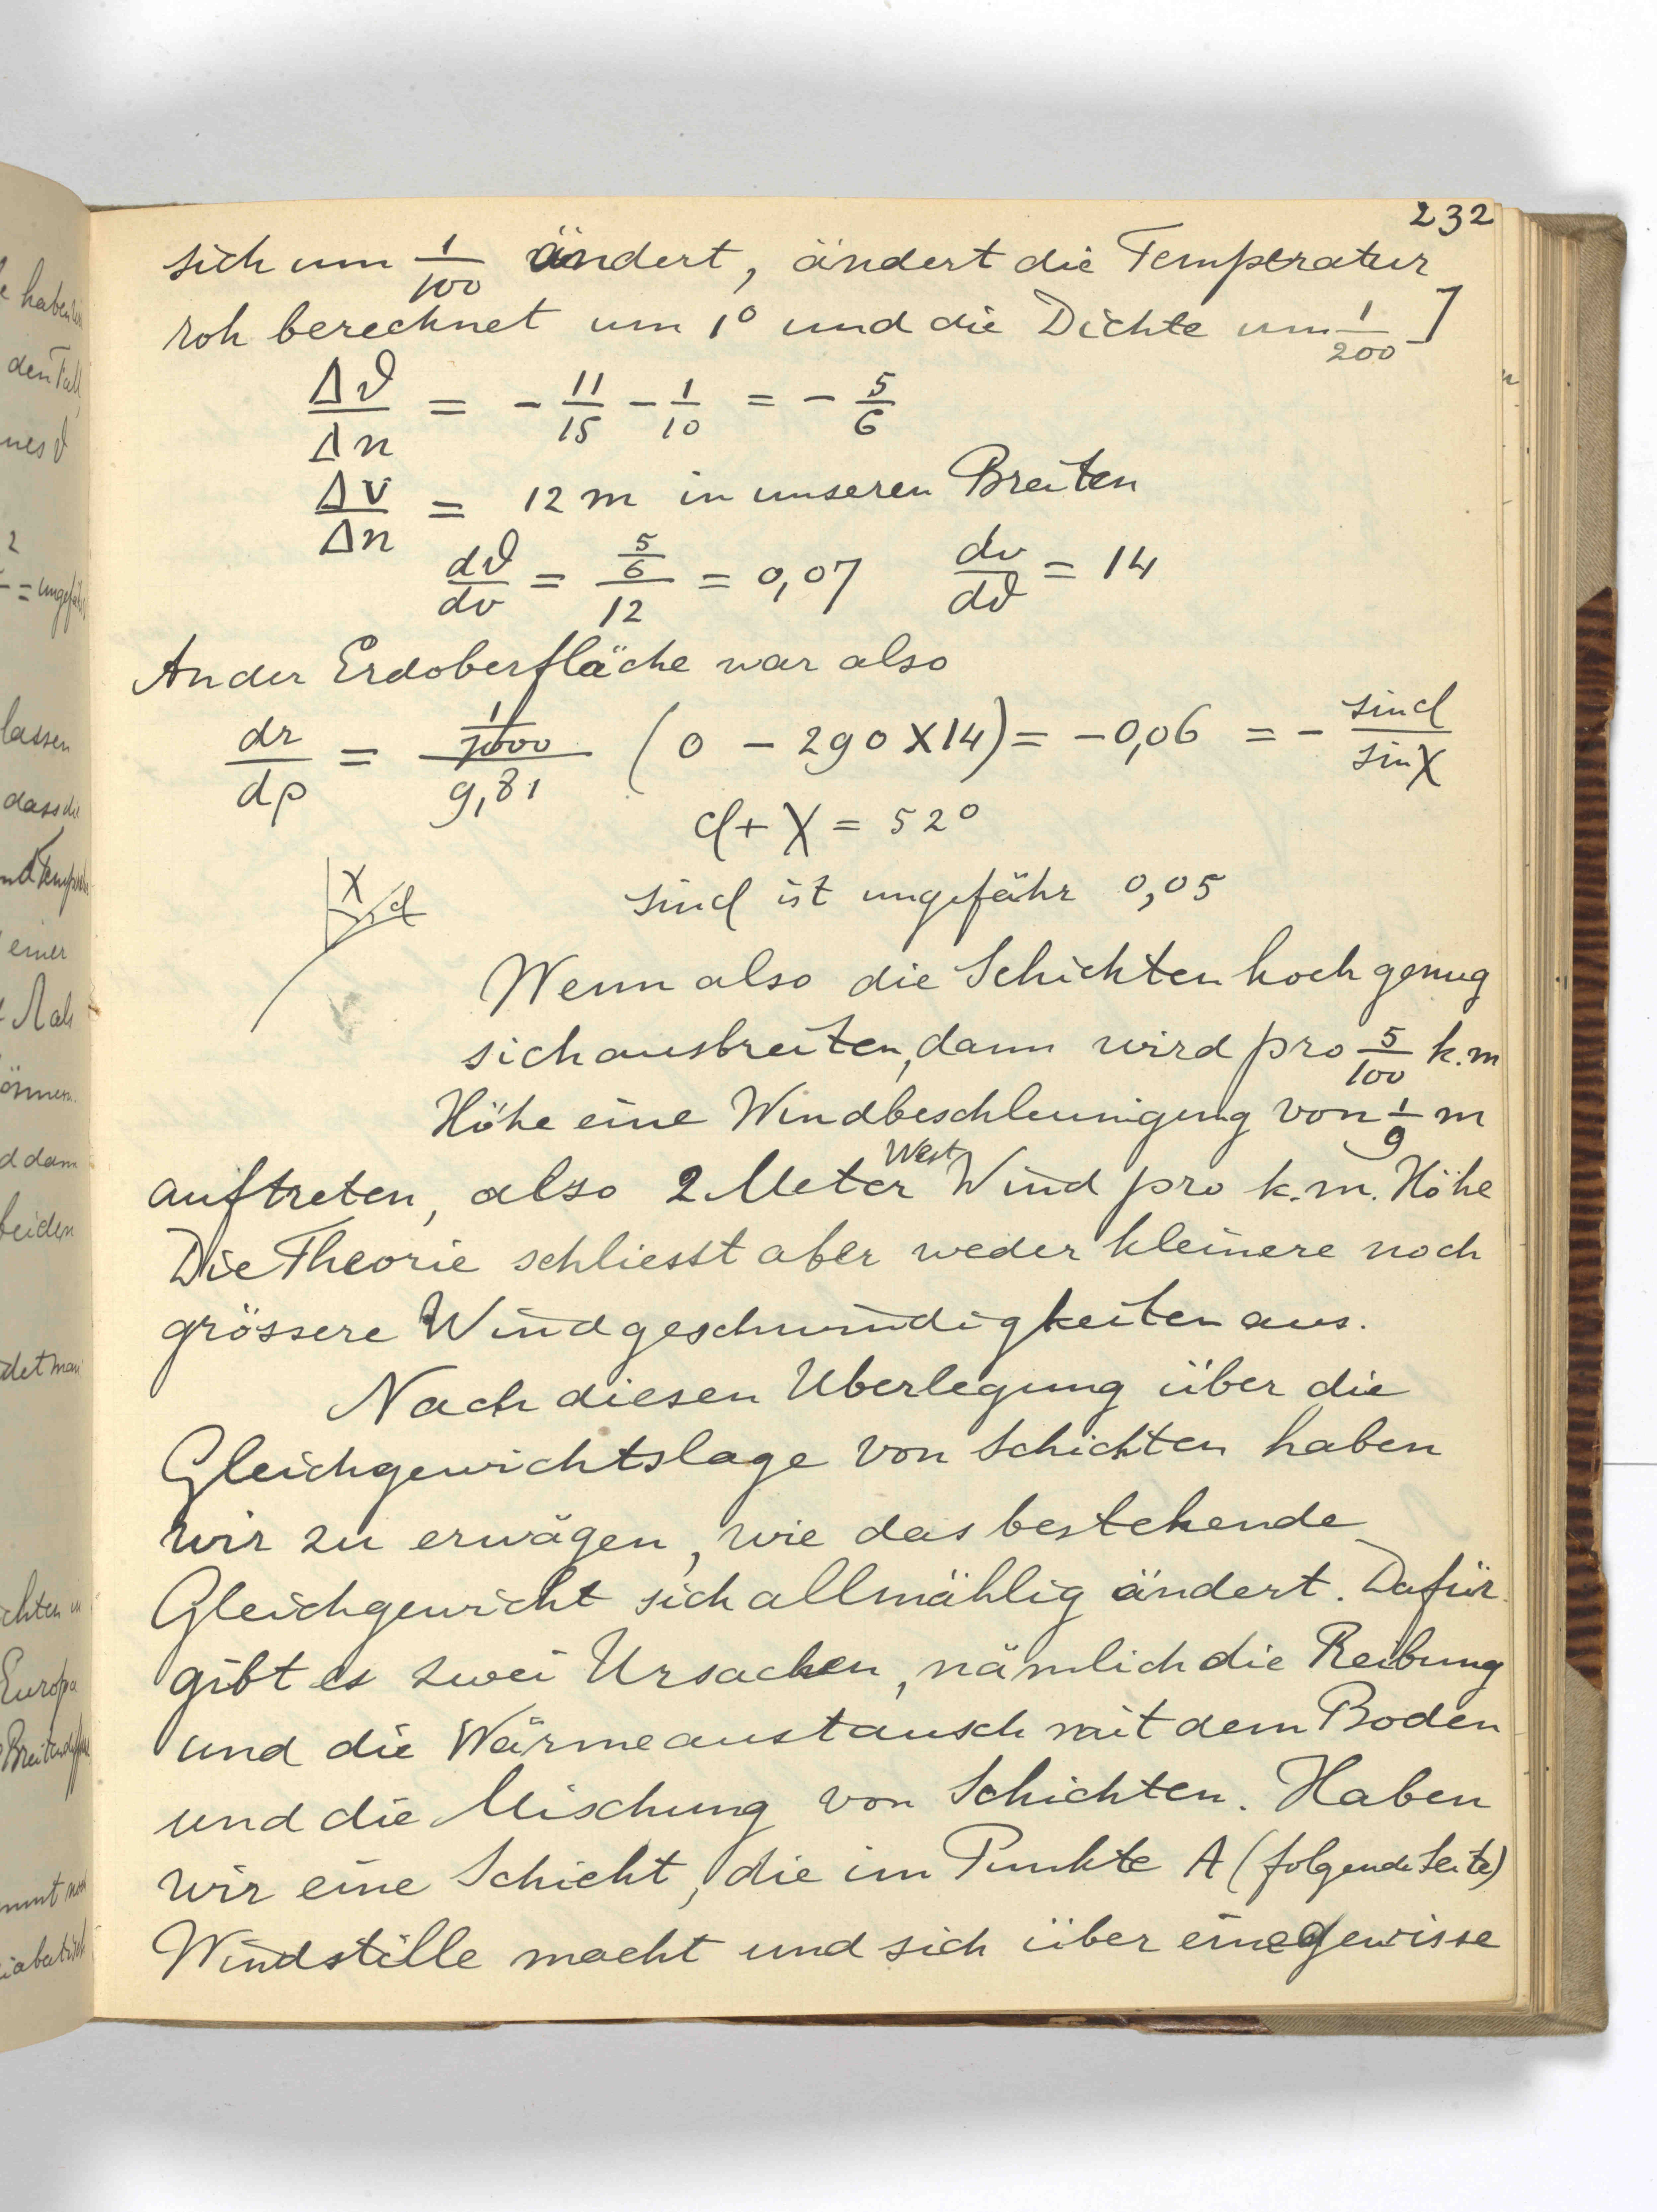 232
sich um 1/100 ändert, ändert die Temperatur
roh berechnet um 1° und die Dichte um 1/200 ]
Δϑ/Δn = - 11/15 - 1/10 = - 5/6
Δv/Δn = 12 m in unseren Breiten
dϑ/dv = (5/6)/12 = 0,07 dv/dϑ = 14
An der Erdoberfläche war also
dr/dρ = (1/1000)/9,81 (0 - 290 X 14) = -0,06 = - sin d/sin χ
d + χ = 52°
χ d
sin d ist ungefähr 0,05
Wenn also die Schichten hoch genug
sich ausbreiten, dann wird pro 5/100 k.m
Höhe eine Windbeschleunigung von 1/9 m
auftreten, also 2 Meter West Wind pro k.m. Höhe
Die Theorie schliesst aber weder kleinere noch
grössere Windgeschwindigkeiten aus.
Nach diesen Uberlegung über die
Gleichgewichtslage von Schichten haben
wir zu erwägen, wie das bestehende
Gleichgewicht sich allmählig ändert. Dafür
gibt es zwei Ursachen, nämlich die Reibung
und die Wärmeaustausch mit dem Boden
und die Mischung von Schichten. Haben
wir eine Schicht, die im Punkte A (folgende Seite)
Windstille macht und sich über eine gewisse